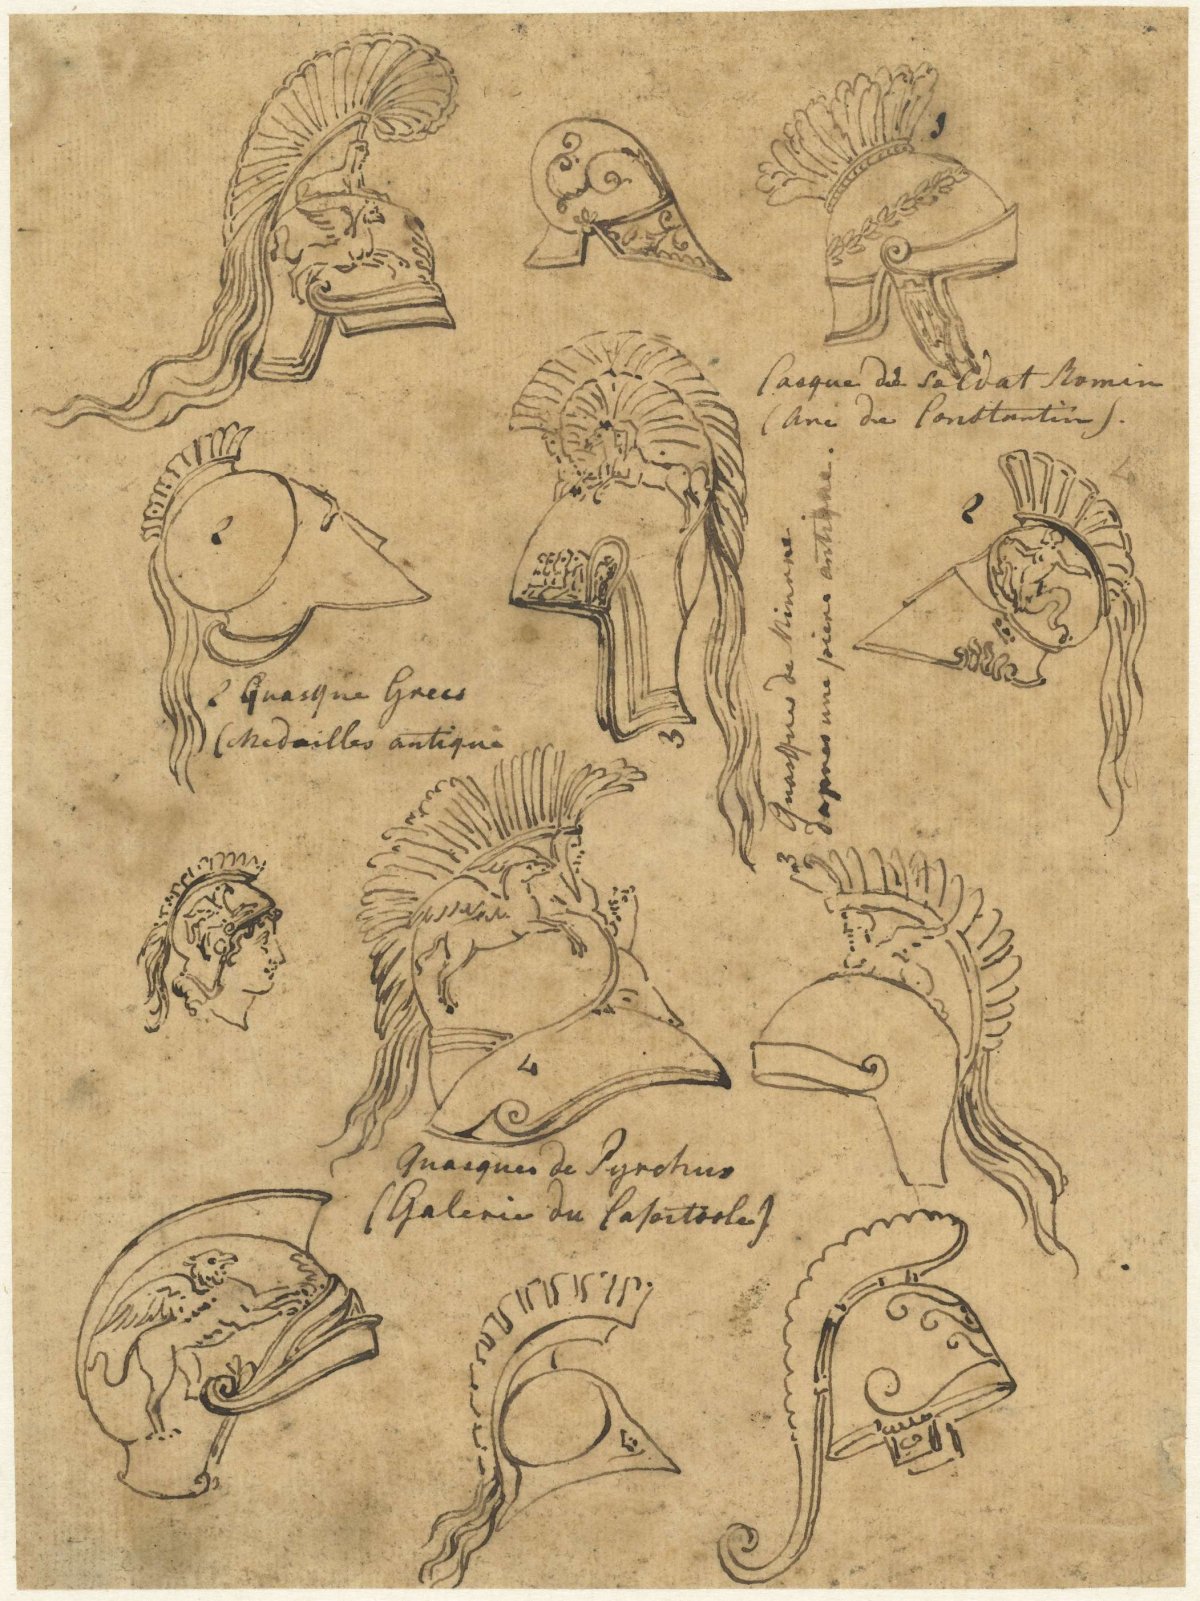 1
Casque de Soldat Romin
(Arc de Constantin).
2
2
2 Quasque Grecs
(Medailles antique
3
3 Quasques de Minerve
dapres une piere antique.
3
4
Quasques de Pyrehus
(Galerie du Capitoole)